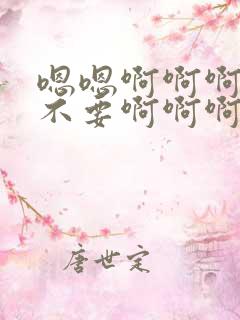 嗯嗯啊啊啊
不要啊啊啊
唐世定